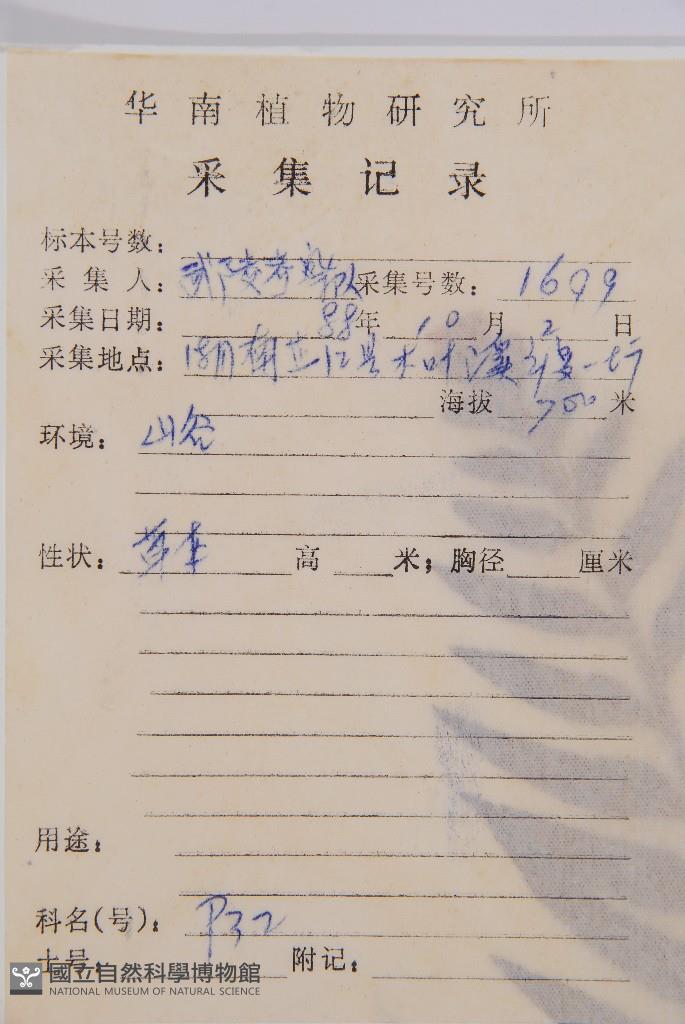 华南植物研究所
采集记录
标本号数：
采集人：武陵考察队 采集号数：1699
采集日期：88年10月2日
采集地点：湖南芷江县木叶溪
海拔700米
环境：山谷
性状：草本 高 米；胸径 厘米
用途：
科名(号)：P32
土号： 附记：
國立自然科學博物館
NATIONAL MUSEUM OF NATURAL SCIENCE